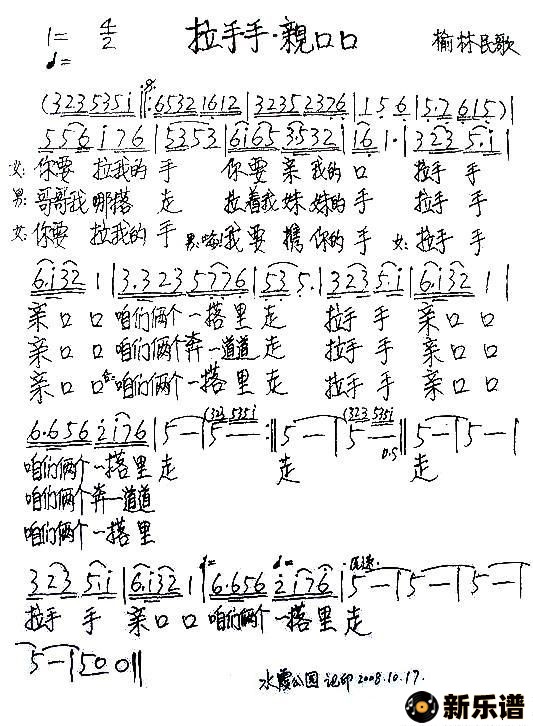 1= 4/2 拉手手·親口口 榆林民歌
(323 535i ‖: 6532 1612 | 3235 2376 | 1 5 6 | 5·7 615) |
556 i76 | 5353 | 6i65 3532 | 16 1· | 323 5·i |
女:你要 拉我的 手 你要 亲 我的 口 拉手 手
男:哥哥我 哪搭 走 拉着我 妹妹的 手 拉手 手
女:你要 拉我的 手 男: 我要 携 你的 手 女:拉手 手
6·i32 1 | 3·323 5776 | 53 5· | 323 5·i | 6·i32 1 |
亲口口 咱们俩个 一搭里 走 拉手 手 亲口口
亲口口 咱们俩个奔 一道道 走 拉手 手 亲口口
亲口口 合:咱们俩个 一搭里 走 拉手 手 亲口口
6·656 2i76 | 5 — | 5 — :‖ 5 — | 5 — ‖ 5 — | 5 — |
(323 535i (323 535i
0.5
咱们俩个 一搭里 走 走 走
咱们俩个奔 一道道
咱们俩个 一搭里
323 5i | 6·i32 1 | 6·656 2i76 | 5 — | 5 — | 5 — |
拉手 手 亲口口 咱们俩个 一搭里 走
5 — | 50 0 ‖
水霞公园 记印 2008.10.17.
新乐谱